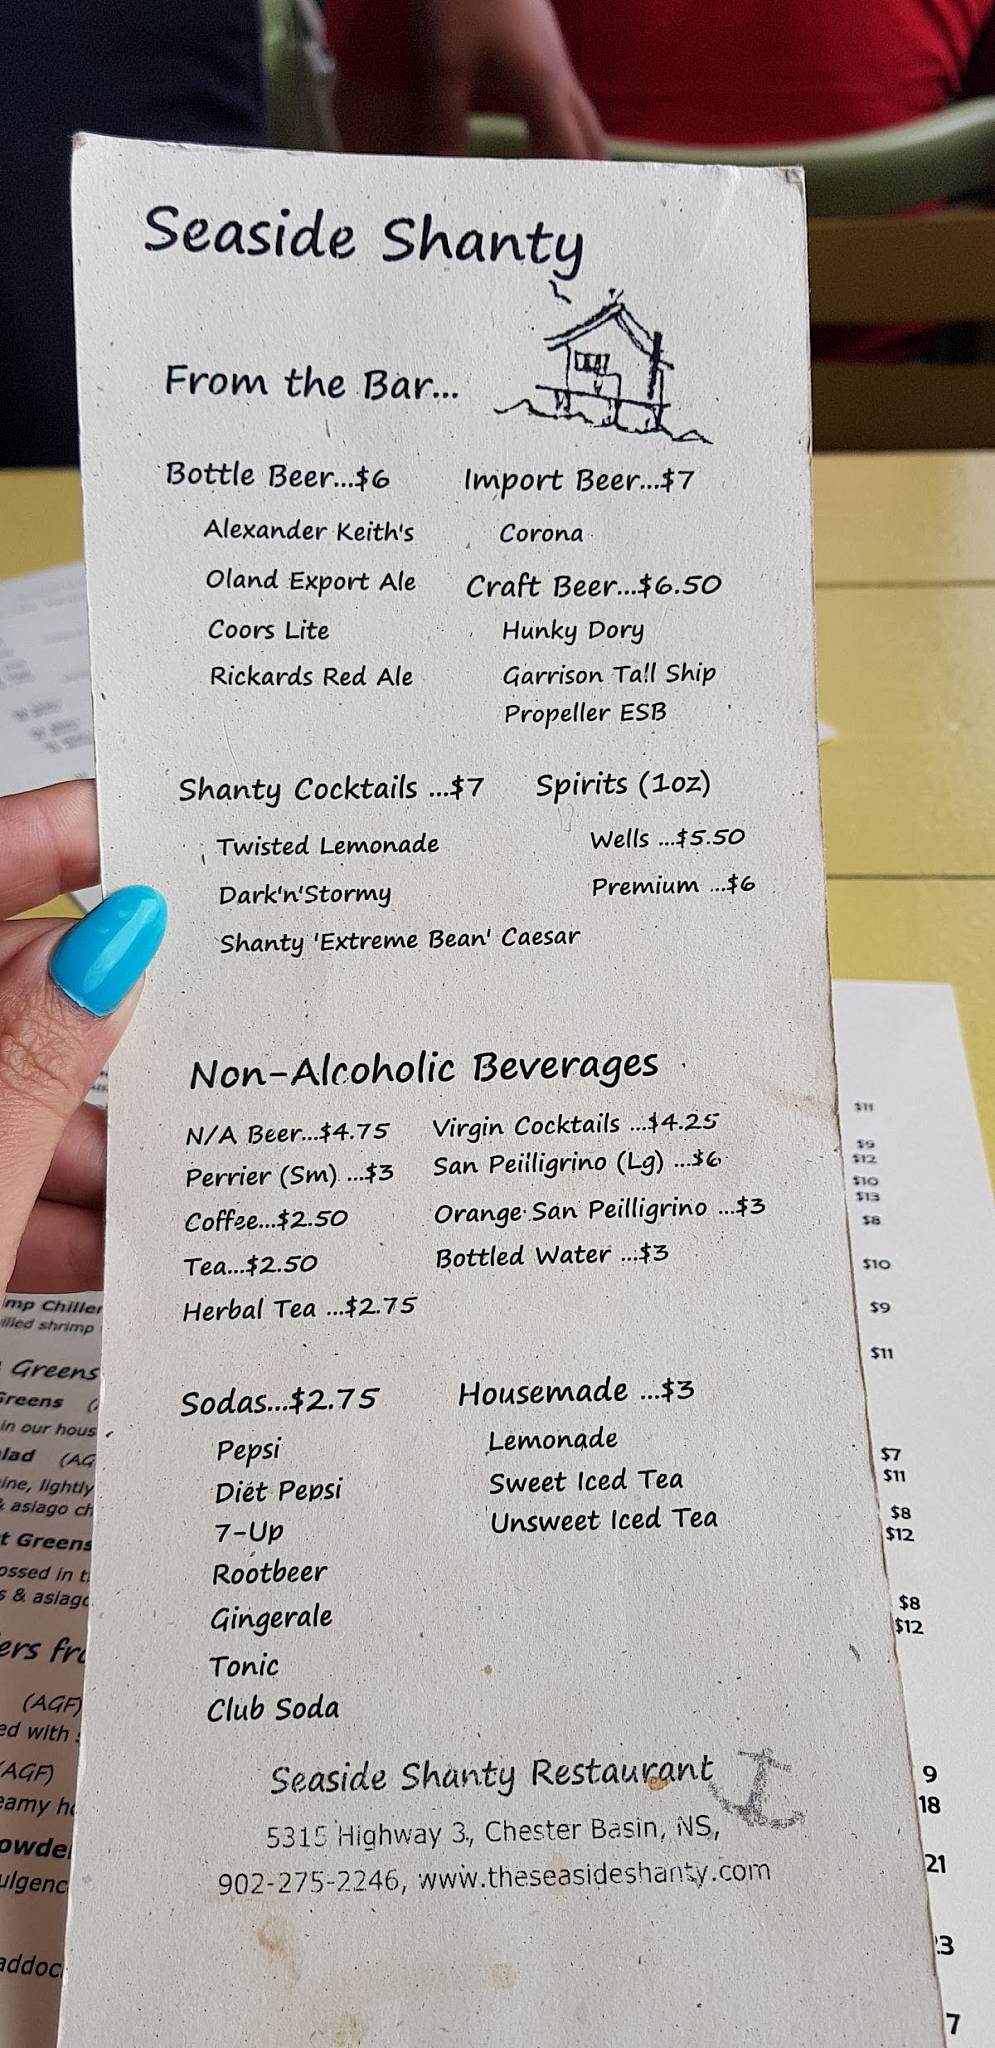 Seaside Shanty
From the Bar...
Bottle Beer...$6
Alexander Keith's
Oland Export Ale
Coors Lite
Rickards Red Ale
Import Beer...$7
Corona
Craft Beer...$6.50
Hunky Dory
Garrison Tall Ship
Propeller ESB
Shanty Cocktails ...$7
Twisted Lemonade
Dark'n'Stormy
Shanty 'Extreme Bean' Caesar
Spirits (1oz)
Wells ...$5.50
Premium ...$6
Non-Alcoholic Beverages
N/A Beer...$4.75
Perrier (Sm) ...$3
Coffee...$2.50
Tea...$2.50
Herbal Tea ...$2.75
Virgin Cocktails ...$4.25
San Peilligrino (Lg) ...$6
Orange San Peilligrino ...$3
Bottled Water ...$3
Sodas...$2.75
Pepsi
Diet Pepsi
7-Up
Rootbeer
Gingerale
Tonic
Club Soda
Housemade ...$3
Lemonade
Sweet Iced Tea
Unsweet Iced Tea
Seaside Shanty Restaurant
5315 Highway 3, Chester Basin, NS,
902-275-2246, www.theseasideshanty.com
Chiller
shrimp
Greens
Greens
in our
(AG
lightly
& asiago
Greens
in
& asiago
(AGF)
with
(AGF)
$11
$9
$12
$10
$13
$8
$10
$9
$11
$7
$11
$8
$12
$8
$12
9
18
21